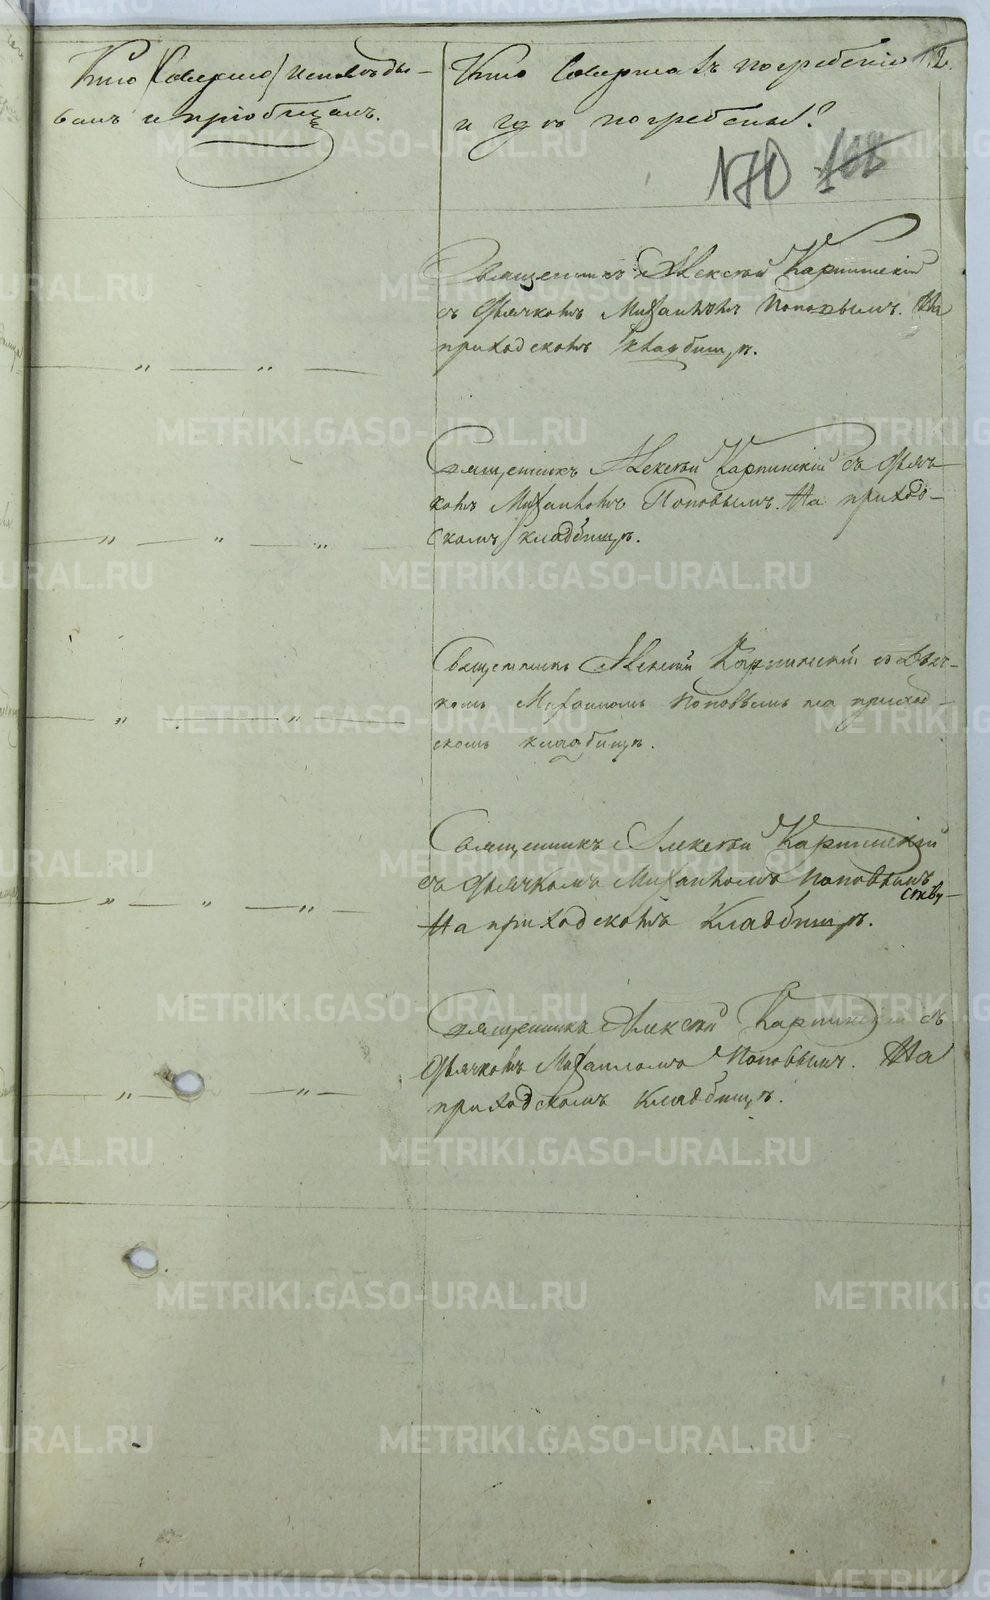 Кто (Соверше) исповѣды-
валъ и пріобщалъ.
Кто Совершалъ погребеніе
и гдѣ погребены?
12.
170 168
Священникъ Алексѣй Карпинскій
съ дьячкомъ Михаиломъ Поповымъ. На
приходскомъ кладбищѣ.
— „ — „ —
Священникъ Алексѣй Карпинскій съ дьяч-
комъ Михаиломъ Поповымъ. На приход-
скомъ кладбищѣ.
— „ — „ — „
Священникъ Алексѣй Карпинскій съ дьяч-
комъ Михаиломъ Поповымъ на приход-
скомъ кладбищѣ.
— „ — „ —
Священникъ Алексѣй Карпинскій
съ дьячкомъ Михаиломъ Поповымъ
На приходскомъ кладбищѣ.
— „ — „ — „ —
Священникъ Алексѣй Карпинскій съ
дьячкомъ Михаиломъ Поповымъ. На
приходскомъ кладбищѣ.
— „ — „ —
METRIKI.GASO-URAL.RU